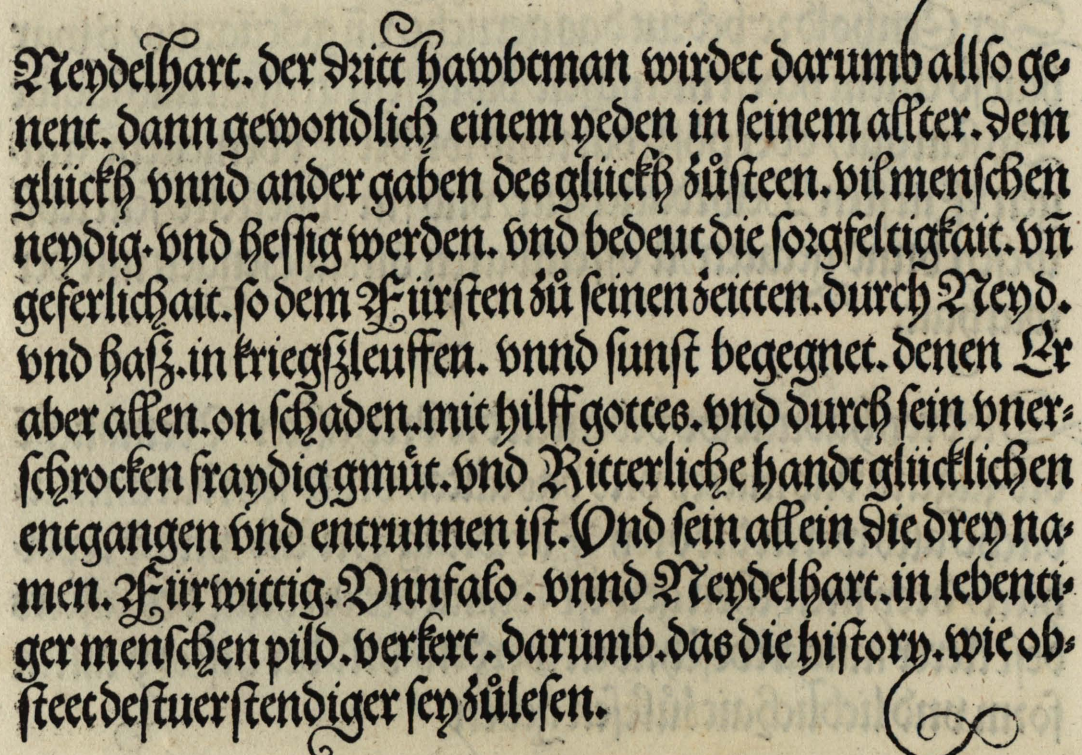 Neydelhart. der dritt hawbtman wirdet darumb allso ge-
nent. dann gewondlich einem yeden in seinem allter. dem
glückh vnnd ander gaben des glückh zůsteen. vil menschen
neydig. vnd hessig werden. vnd bedeut die sorgfeltigkait. vñ
geferlichait. so dem Fürsten zů seinen zeitten. durch Neyd.
vnd hasz. in kriegszleuffen. vnnd sunst begegnet. denen Er
aber allen. on schaden. mit hilff gottes. vnd durch sein vner-
schrocken fraydig gmůt. vnd Ritterliche handt glücklichen
entgangen vnd entrunnen ist. Vnd sein allein die drey na-
men. Fürwittig. Vnnfalo. vnnd Neydelhart. in lebenti-
ger menschen pild. verkert. darumb. das die history. wie ob-
steet destuer stendiger sey zůlesen.